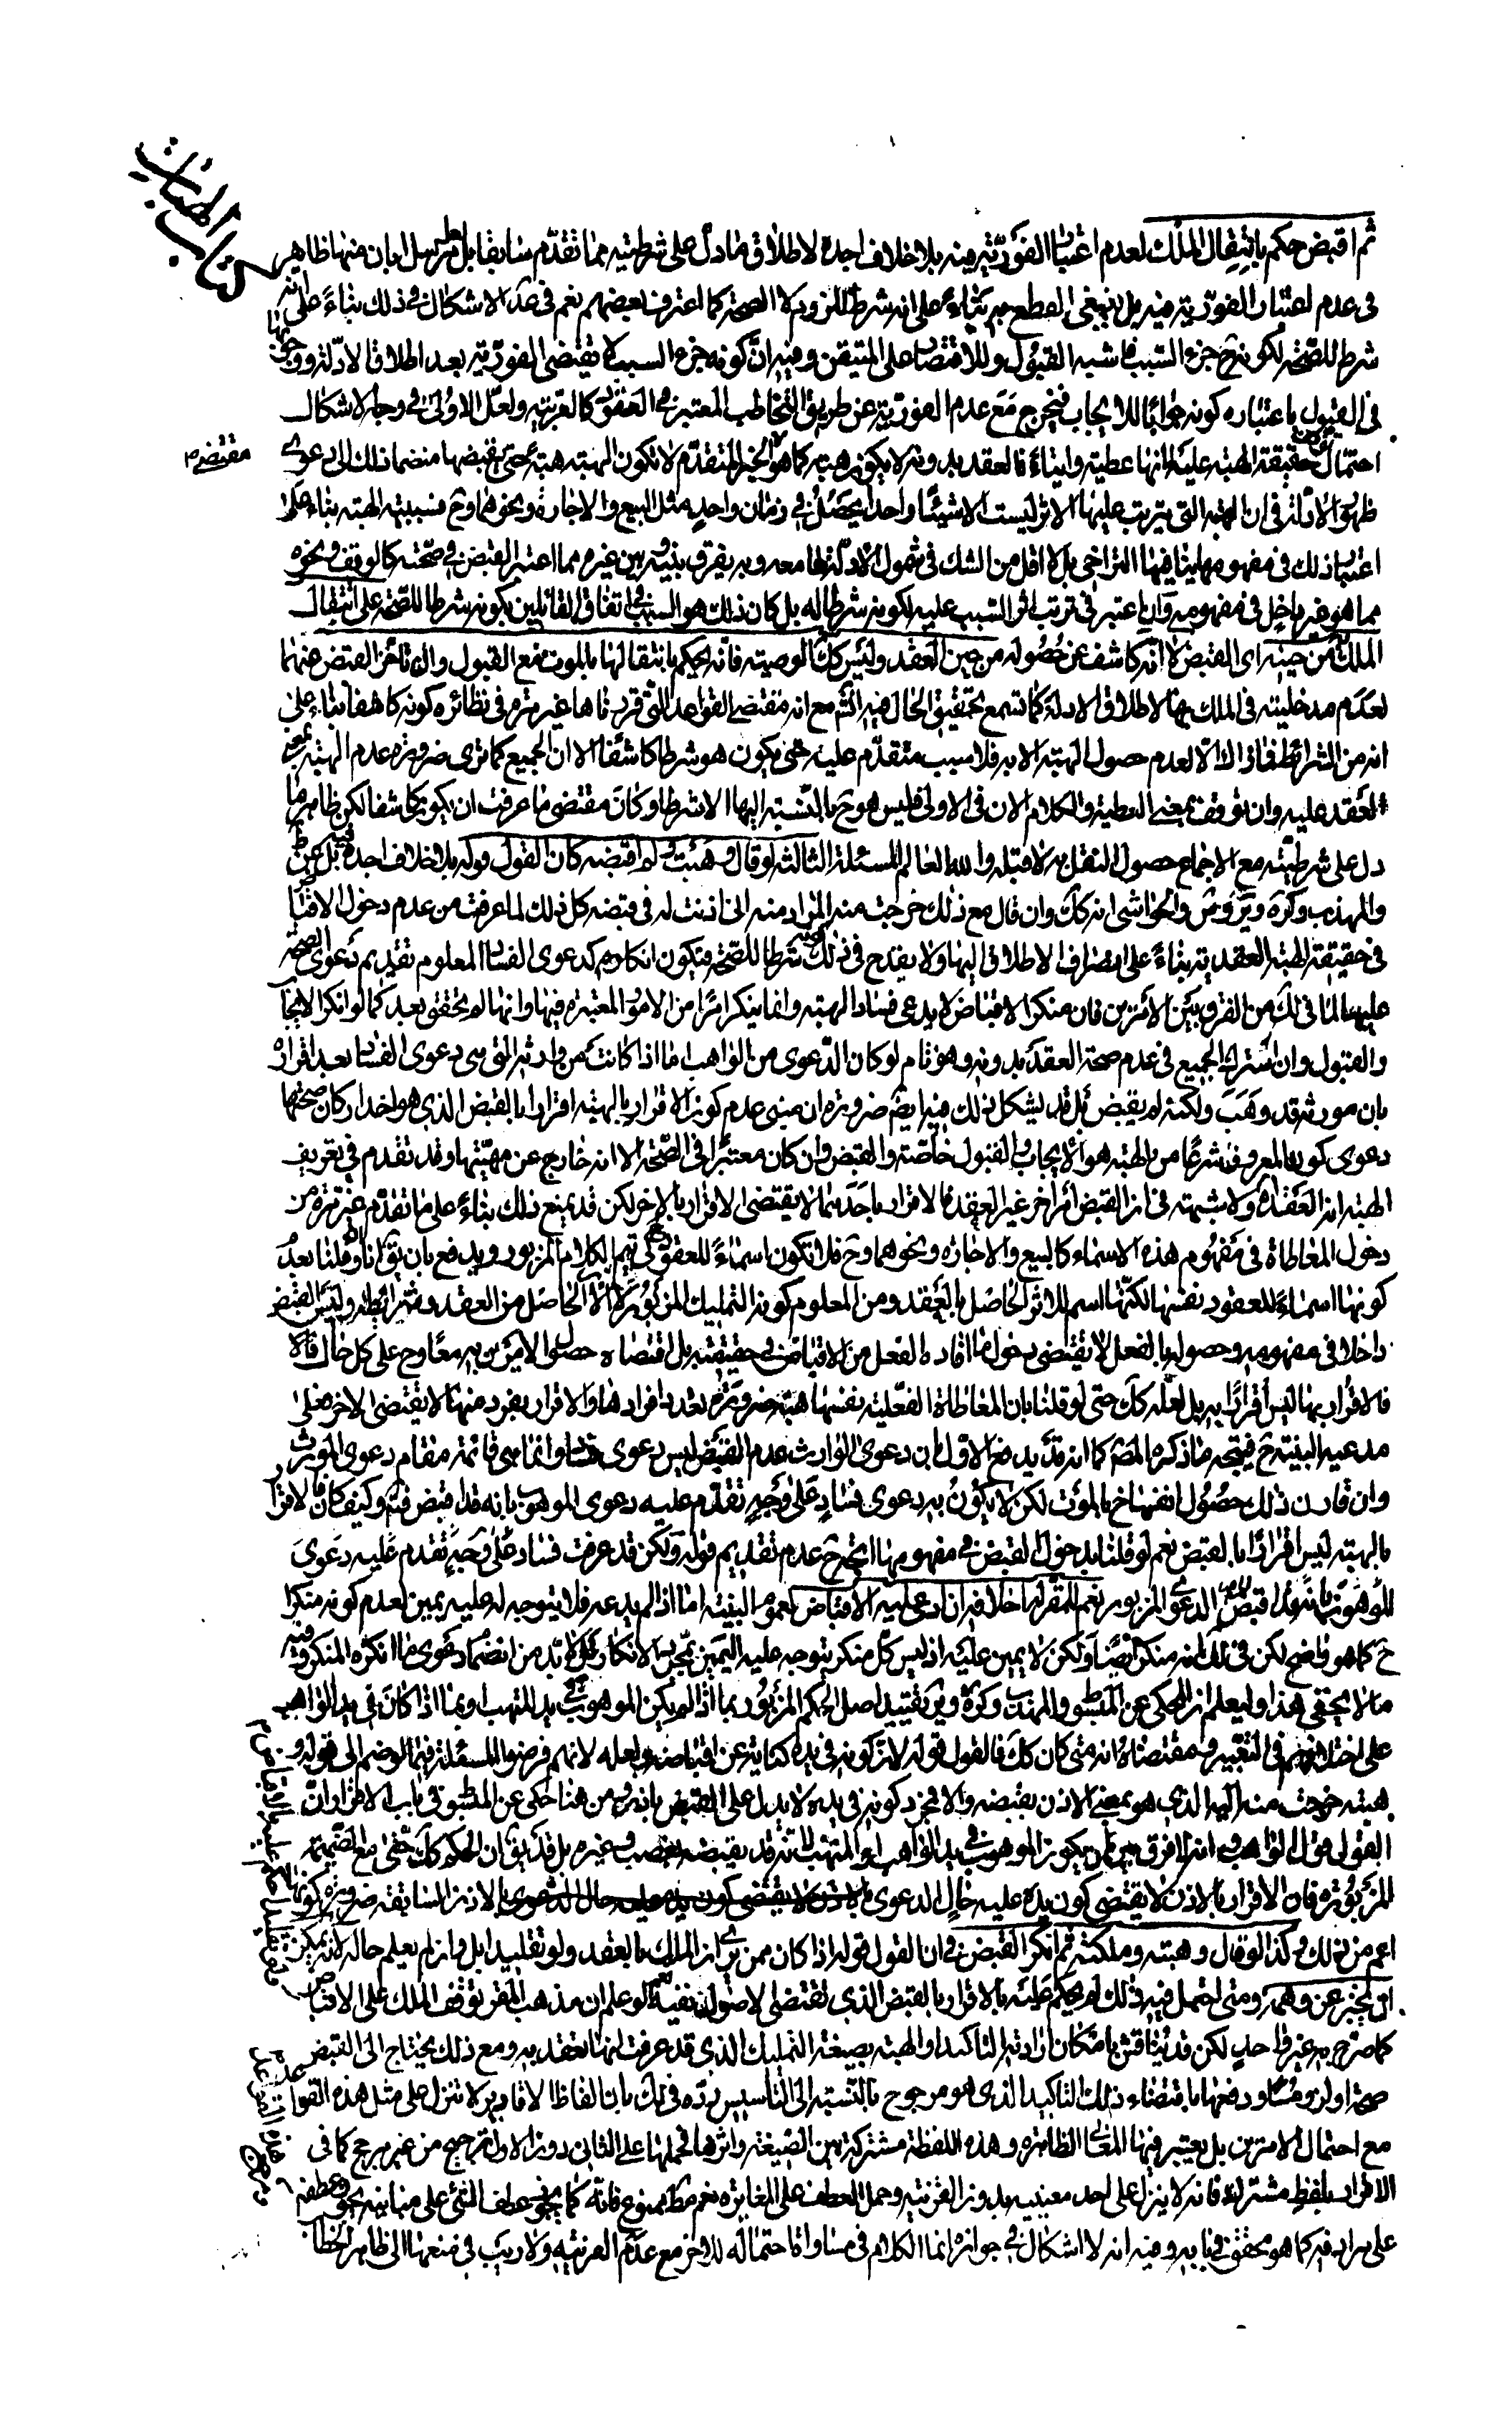 كتاب الهبات
ثم اقبض حكم بانتقال الملك لعدم اعتبار الفوريّة فيه بلا خلاف اجده لاطلاق ما دل على شرطيته مما تقدّم سابقا بل مرسل ابان منها ظاهر
في عدم اعتبار الفوريّة فيه بل ينبغي القطع به بناءً على انه شرط للزوم لا الصحة كما اعترف بعضهم نعم في عدم الاشكال في ذلك بناءً على انه
شرط للصّحة لكونه ح جزء السّبب فاشبه القبول وللاقتصار على المتيقن وفيه انّ كونه جزء السبب لا يقتضي الفوريّة بعد اطلاق الادلّة ووجوبها
في القبول باعتبار كونه جوابًا للايجاب فيخرج مَعَ عدم الفوريّة عن طريق التخاطب المعتبر في العقود كالعربيّة ولعلّ الاولى في وجه الاشكال
احتمال حقيقة الهبة عليه انها عطية وايتاء فالعقد بدونه لا يكون هبة كما هو الخبر المتقدّم لا تكون الهبة هبة حتى يقبضها منضما ذلك الى دعوى
مقتضى
ظهور الادلّة في ان الهبة التي يترتب عليها الاثر ليست الا شيئًا واحدا يحصل في زمان واحد مثل البيع والاجارة ونحوهما وح فسببية الهبة بناء على
اعتبار ذلك في مفهومها ينافيها التراخي بل لا اقل من الشك في شمول الادلّة لها معه وبه يفرق بينه وبين غيره مما اعتبر القبض في صحّته كالوقف ونحوه
مما هو غير داخل في مفهومه وان اعتبر في ترتب اثر السّبب عليه لكونه شرطا له بل كان ذلك هو السبب في اتفاق القائلين بكونه شرطا للصّحة على انتقال
الملك من حينه اي القبض لا انّه كاشف عن حُصُوله من حين العَقد وليس كك الوصية فانّه يحكم بانتقالها بالموت مع القبول وان تاخر القبض عنهما
لعَدَم مدخليته في الملك بها لاطلاق الادلة كما تسمع تحقيق الحال فيه انشم مع انه مقتضى القواعد التي قررناها غير مرّة في نظائره كونه كاشفا بناءً على
انه من الشرائط فما ذاك الا لعدم حصول الهبة الا به فلا سبب متقدّم عليه حتى يكون هو شرطا كاشفًا الا ان الجميع كما ترى ضرورة عدم الهبة بمعنى
العَقد عليه وان توقفت بمعنى العطية والكلام الان في الاولى فليس هو ح بالنّسبة اليها الا شرطا وكان مقتضى ما عرفت ان يكون كاشفا لكن ظاهر ما
دل على شرطيّته مع الاجماع حصول النقل به لا قبله والله العالم المسئلة الثالثة لو قال وَهَبت ولم اقبضه كان القول قوله بلا خلاف اجده فيه بل عن ط
والمهذب وكره وير وعد وس والحواشي انه كك وان قال مع ذلك خرجت منه المراد منه اني اذنت له في قبضه كل ذلك لما عرفت من عدم دخول الاقباض
في حقيقة الهبة العقدية بناءً على انصراف الاطلاق اليها ولا يقدح في ذلك كونه شرطا للصّحة فيكون انكاره كدعوى الفساد المعلوم تقديم دعوى الصحة
عليها لما في لك من الفرق بَيْن الامرين فان منكر الاقباض لا يدعي فساد الهبة وانما ينكر امرًا من الامور المعتبرة فيها وانها لم يتحقق بعد كما لو انكر الايجاب
والقبول وان اشترك الجميع في عدم صحة العقد بدونه وهو تام لو كان الدّعوى من الواهب اما اذا كانت من وارثه التي هي دعوى الفساد بعد اقراره
بان مورثه قد وهَبَ ولكنه لم يقبض بل قد يشكل ذلك فيه ايضم ضرورة ان مبنى عدم كون الاقرار بالهبة اقرارا بالقبض الذي هو احد اركان صحتها
دعوى كون المعروف شرعًا من الهبة هو الايجاب والقبول خاصّة والقبض وان كان معتبرًا في الصّحة الا انه خارج عن مهيّتها وقد تقدم في تعريف
الهبة انه العَقد الخ ولا شبهة في ان القبض امر اخر غير العقد فالاقرار باحَدهما لا يقتضي الاقرار بالاخر لكن قد يمنع ذلك بناءً على ما تقدّم غير مرّة من
دخول المعاطاة في مَفهُوم هذه الاسماء كالبيع والاجاره ونحوهما وح فلا تكون اسماءً للعقود كي يتم الكلام المزبور ويدفع بان يق انا وان قلنا بعدُ
كونها اسماءً للعقود نفسها لكنّها اسم للاثر الحاصل بالعَقد ومن المعلوم كونه التمليك المزبور لا الحاصل من العقد وشرائطه وليس القبض
داخلا في مفهومه وحصولها بالفعل لا يقتضي دخول ما افاده الفعل من الاقباض في حقيقته بل اقتضاه حصول الامرين به معًا وح على كل حال
فالاقرار بها ليس اقرارًا به بل لعلّه كك حتى لو قلنا بان المعاطاة الفعّلية نفسها هبة ضرورة تعدد افرادها والاقرار بفرد منها لا يقتضي الاخر فعلى
مدعيه البينة ح فيتّجه ما ذكره المصم كما انه قد يدفع الاول بان دعوى الوارث عدم القبض ليس دعوى فساد وانما هي قائمة مقام دعوى المورث
وان قارن ذلك حصُول انفساخ بالموت لكن لا يكون به دعوى فسَادٍ عَلى وَجهٍ تقدّم عليه دعوى الموهوب بانه قد قبض فتم وكيف كان فالاقرار
بالهبة ليس اقرارًا بالقبض نعم لو قلنا بدخول القبض في مفهومها اتجه ح عدم تقديم قوله ولكن قد عرفت فساده على وجهٍ تقدم عَليه دعوى
الموهُوب بانه قد اقبض الدعوى المزبوره نعم للمقر له احلافه ان ادعى عليه الاقباض لعموم البينة اما اذا لم يدعه فلا يتوجه له عليه يمين لعدم كونه منكرا
ح كما هو واضح لكن في لك انه منكر ايضًا ولكن لا يمين عليه اذ ليس كل منكر يتوجه عليه اليَمين بمجرد الانكار بل لا بد من انضمام دعوى ما انكره المنكر وفيه
ما لا يخفى هذا وليعلم ان المحكي عن المبسُوط والمهذب وكره وير تقييد اصل الحكم المزبور بما اذا لم يكن الموهوب في يد المتهب او بما اذا كان في يد الواهب
على اختلافهم في التعبير ومقتضاه انه متى كان كك فالقول قوله لان كونه في يده كناية عن اقباضه ولعله لانهم فرضوا المسئلة فيما لو ضم الى قوله و
هبته خرجت منه اليه الذي هو بمعنى الاذن بقبضه والا فمجرد كونه في يده لا يدل على القبض باذنه ومن هنا حكي عن المبسُوط في باب الاقرار انّ
القول قول الواهب وانه لا فرق بين ان يكون الموهوب في يد الواهب او المتهب لانه قد يقبضه بغصب وغيره بل قد يق ان الحكم كك حتى مع الضّميمة
المزبُورة فان الاقرار بالاذن لا يقتضي كون يده عليه حال الدعوى بالاذن السّابقة ضرورة كونها
اعم من ذلك وكذا لو قال وهبته وملكته ثم انكر القبض في ان القول قوله اذا كان ممن يرى ان الملك بالعقد ولو تقليدا بل وان لم يعلم حاله لانه يمكن
ان يخبر عن وهمه ومتى احتمل فيه ذلك لم يحكم عَليه بالاقرار بالقبض الذي تقتضي الاصول نفيه نعم لو علم ان مذهب المقر توقف الملك على الاقباض
كما صرّح به غير واحد لكن قد يُناقش بامكان ارادته التاكيد او الهبة بصيغة التمليك الذي قد عرفت انها تعقد به ومع ذلك يحتاج الى القبض
صحة او لزوما ودفعها باقتضاء ذلك التاكيد الذي هو مرجوح بالنّسبة الى التأسيس يردّه في لك بان الفاظ الاقارير لا تنزل على مثل هذه القواعد
مع احتمال الامرين بل يعتبر فيها المعَاني الظاهره وهذه اللفظة مشتركة بين الصّيغة واثرها فحملها على الثاني دون الاول ترجيح من غير مرجح كما في
الاقرار بلفظٍ مشتركٍ فانه لا ينزل على احد معينيه بدون القرينه وحمل العطف على المغايره نعم مط ممنوع فانّه كما يجوز عطف الشئ على مباينه يجوز عطفه
على مرادفه كما هو محقق في بابه وفيه انه لا اشكال في جوازه انما الكلام في مساواة احتماله للاخر مع عدَم القرينه ولا ريب في منعها الى ظاهر الخطاب